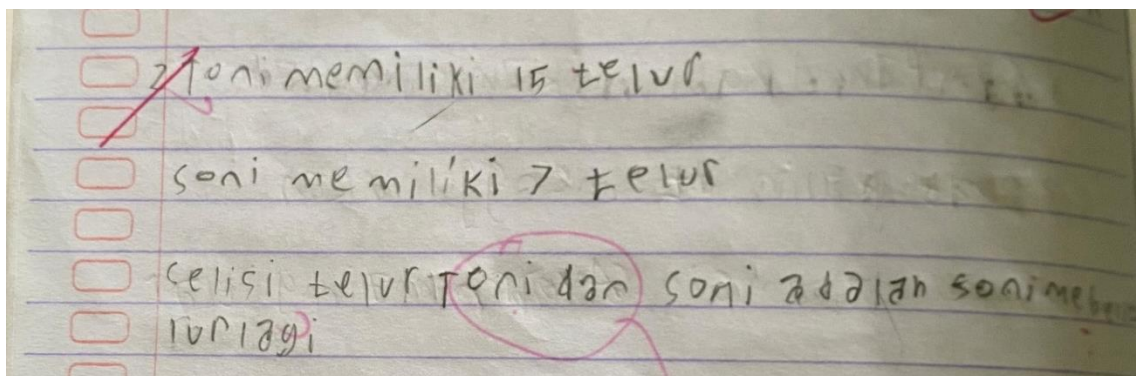 2 Toni memiliki 15 telur
soni memiliki 7 telur
selisi telur Toni dan soni adalah soni
lur lagi